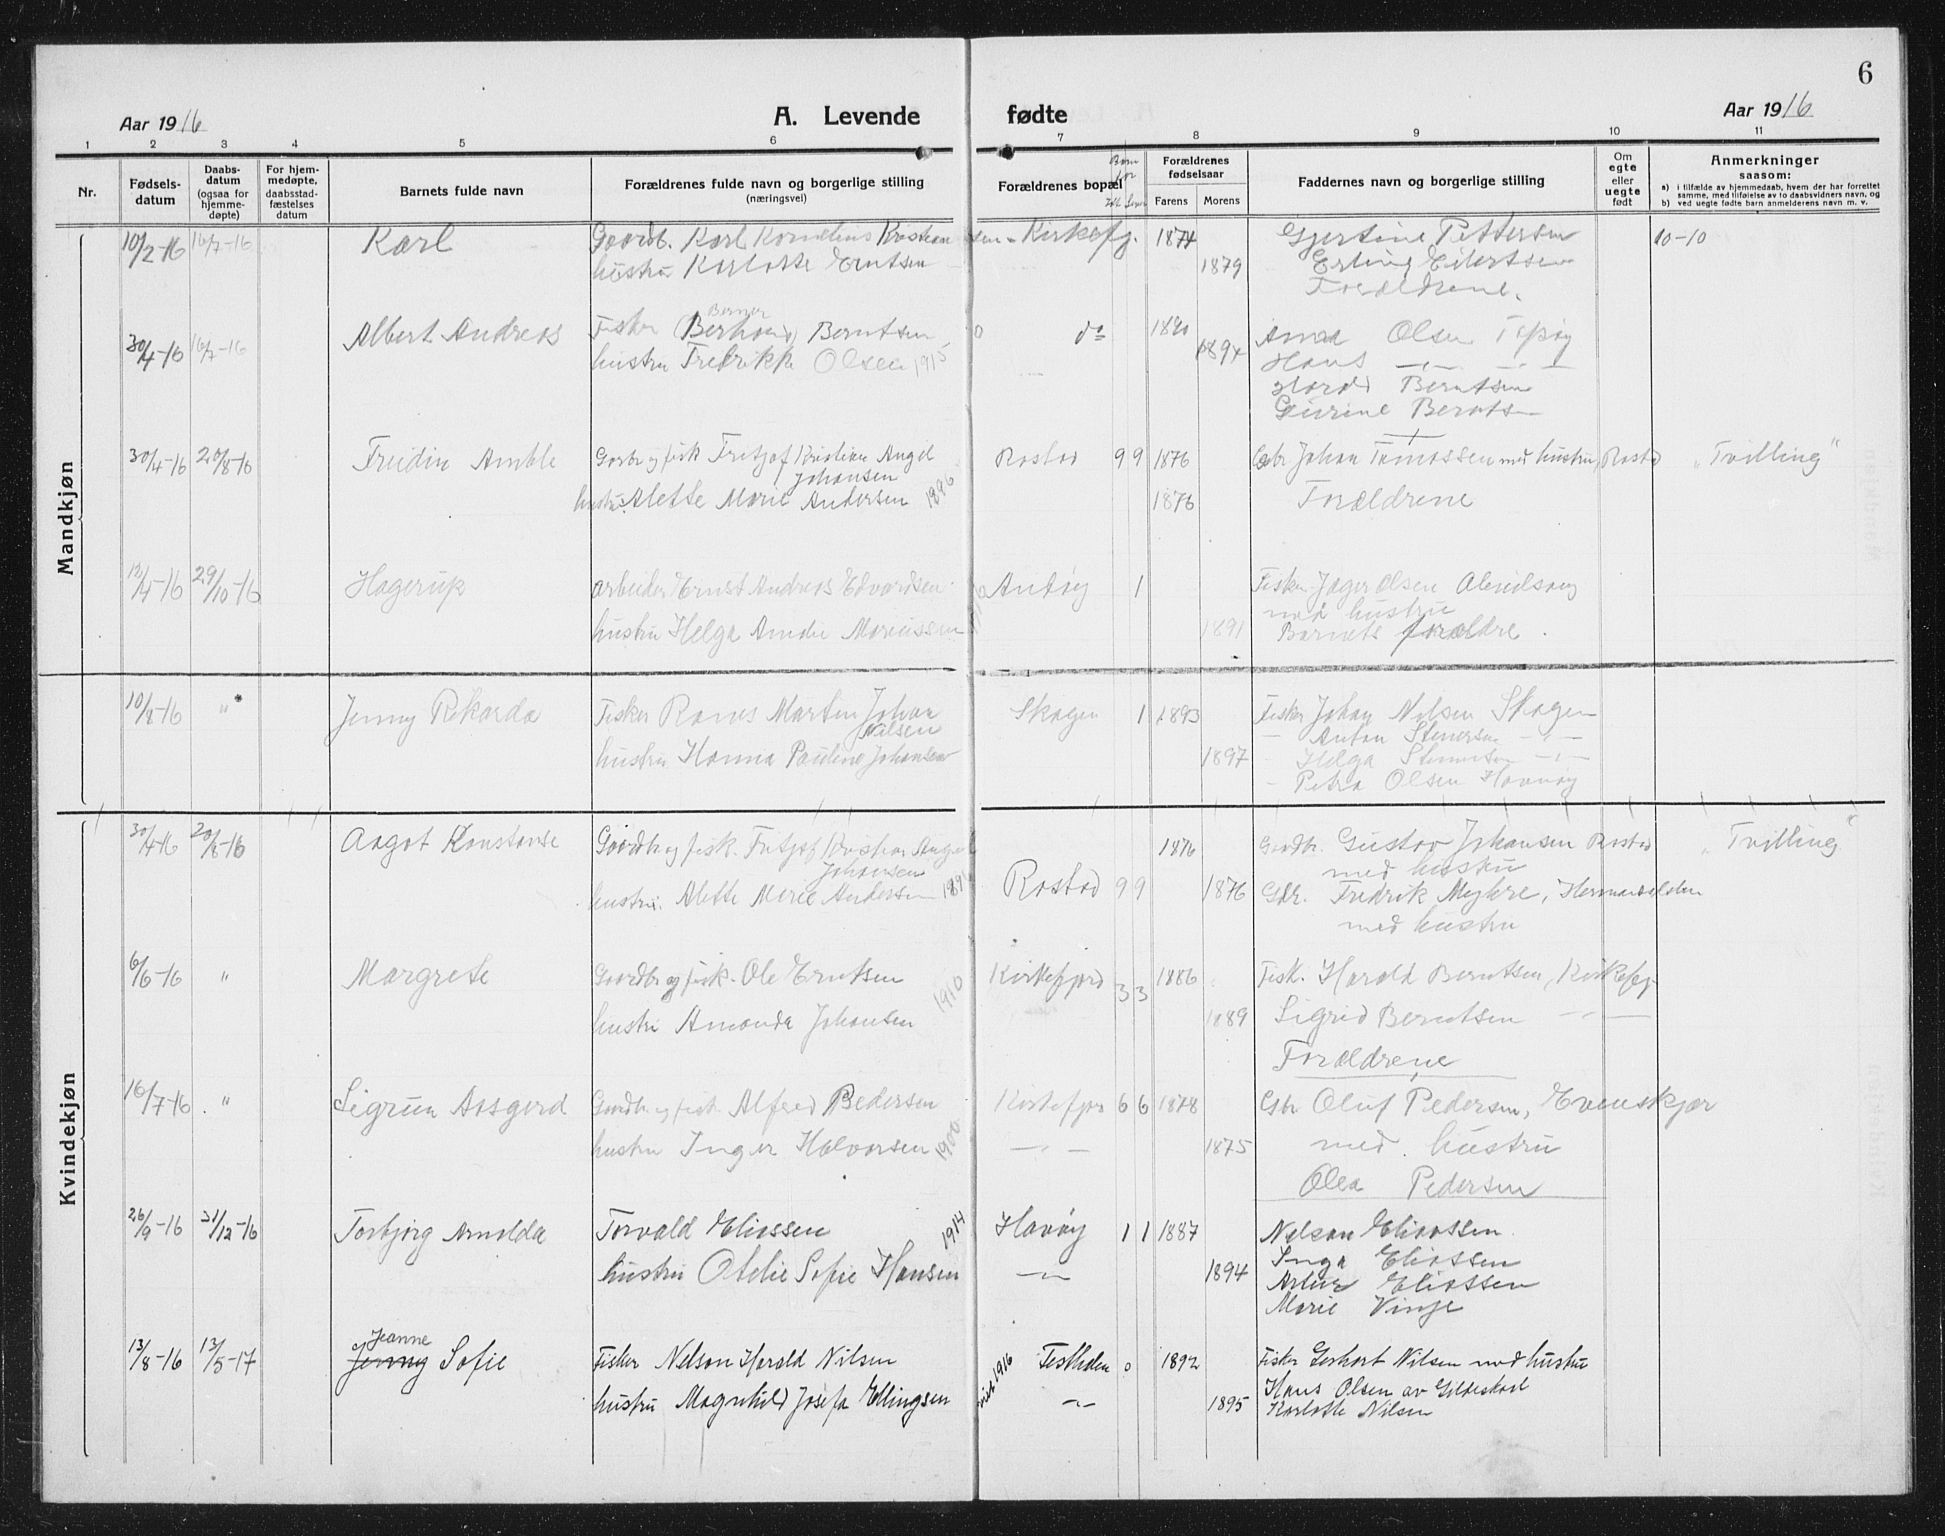 6
Aar 1916
A. Levende fødte
Aar 1916
1 2 3 4 5 6 7 8 9 10 11
Nr.
Fødsels-
datum
Daabs-
datum
(ogsaa for
hjemme-
døpte)
For hjem-
medøpte,
daabsstad-
fæstelses
datum
Barnets fulde navn
Forældrenes fulde navn og borgerlige stilling
(næringsvei)
Forældrenes bopæl
Forældrenes
fødselsaar
Farens Morens
Faddernes navn og borgerlige stilling
Om
egte
eller
uegte
født
Anmerkninger
saasom:
a) i tilfælde av hjemmedaab, hvem der har forrettet
samme, med tilføielse av to daabsvidners navn, og
b) ved uegte fødte barn anmelderens navn m. v.
Mandkjøn
10/2-16 16/7-16 Karl Gaardb. Karl Kornelius Kristiansen Kirkefj. 1874 Gjertine Pettersen 10-10
hustru Karlotte Erntsen 1879 Erling Eilertsen
Forældrene.
30/4-16 16/7-16 Albert Andreas Fisker (Berhard) Berntsen 0 do 1890 Anna Olsen
Berner
hustru Fredrikke Olsen 1915 1894 Hans -"- -"-
Harald Berntsen
Berntsen
30/4-16 20/8-16 Amble Gaardbr og fisk Fritjof Kristian Angel Rostad 9 9 1876 Gbr Johan Tomassen med hustru, Rostad "Tvilling"
Johansen
hustru Alette Marie Andersen 1896 1876 Forældrene
12/4-16 29/10-16 Hagerup arbeider Ernst Andreas Edvardsen 1 Fisker Olsen
med hustru
hustru Helga Mariussen 1891 Barnets forældre.
10/8-16 " Jenny Rikarda Fisker Martin Johan Skagen 1 1893 Fisker Johan Nilsen Skagen
Nilsen
- Anton Stenersen -"-
hustru Hanna Pauline Johansen 1897 - Helga Stenersen -"-
- Petra Olsen Havnøy
Kvindekjøn
30/4-16 20/8-16 Aagot Konstanse Gaardbr og fisk. Fritjof Kristian Angel 1876 Gaardbr. Gustav Johansen Rostad "Tvilling"
Johansen
med hustru
hustru. Alette Marie Andersen 1896 Rostad 9 9 1876 Gbr. Fredrik
med hustru
6/6-16 " Margrete Gaardbr og fisk. Ole Erntsen 1910 Kirkefjord 3 3 1886 Fisk. Harald Berntsen, Kirkefj.
hustru Amanda Johansen 1889 Sigrid Berntsen -"-
Forældrene
16/7-16 " Sigrun Aasgerd Gaardb og fisk. Alfred Pedersen Kirkefjor 6 6 1878 Gbr Oluf Pedersen, Evenskjær
hustru Inger Halvorsen 1900 -"- 1875 med hustru
Olea Pedersen
26/9-16 31/12-16 Torbjørg Arnolda Torvald Eliassen 1914 Havøy 1 1 1887 Nelson Eliassen
Inga Eliassen
hustru Otelie Sofie Hansen -"- 1894 Artur Eliassen
Marie Vinje
Jeanne
13/8-16 13/5-17 Jenny Sofie Fisker Nelson Harald Nilsen 1916 Testholen 0 1892 Fisker Gerhart Nilsen med hustru
hustru Magnhild Josefa Ellingsen -"- 1895 Hans Olsen av Gildeskaal
Karlotte Nilsen